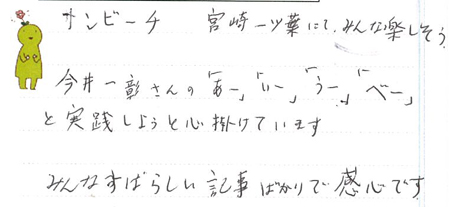 サンビーチ 宮崎一ツ葉にて、みんな楽しそう
今井一彰さんの「あー」「いー」「うー」「べー」
と実践しようと心掛けています
みんなすばらしい記事ばかりで感心です